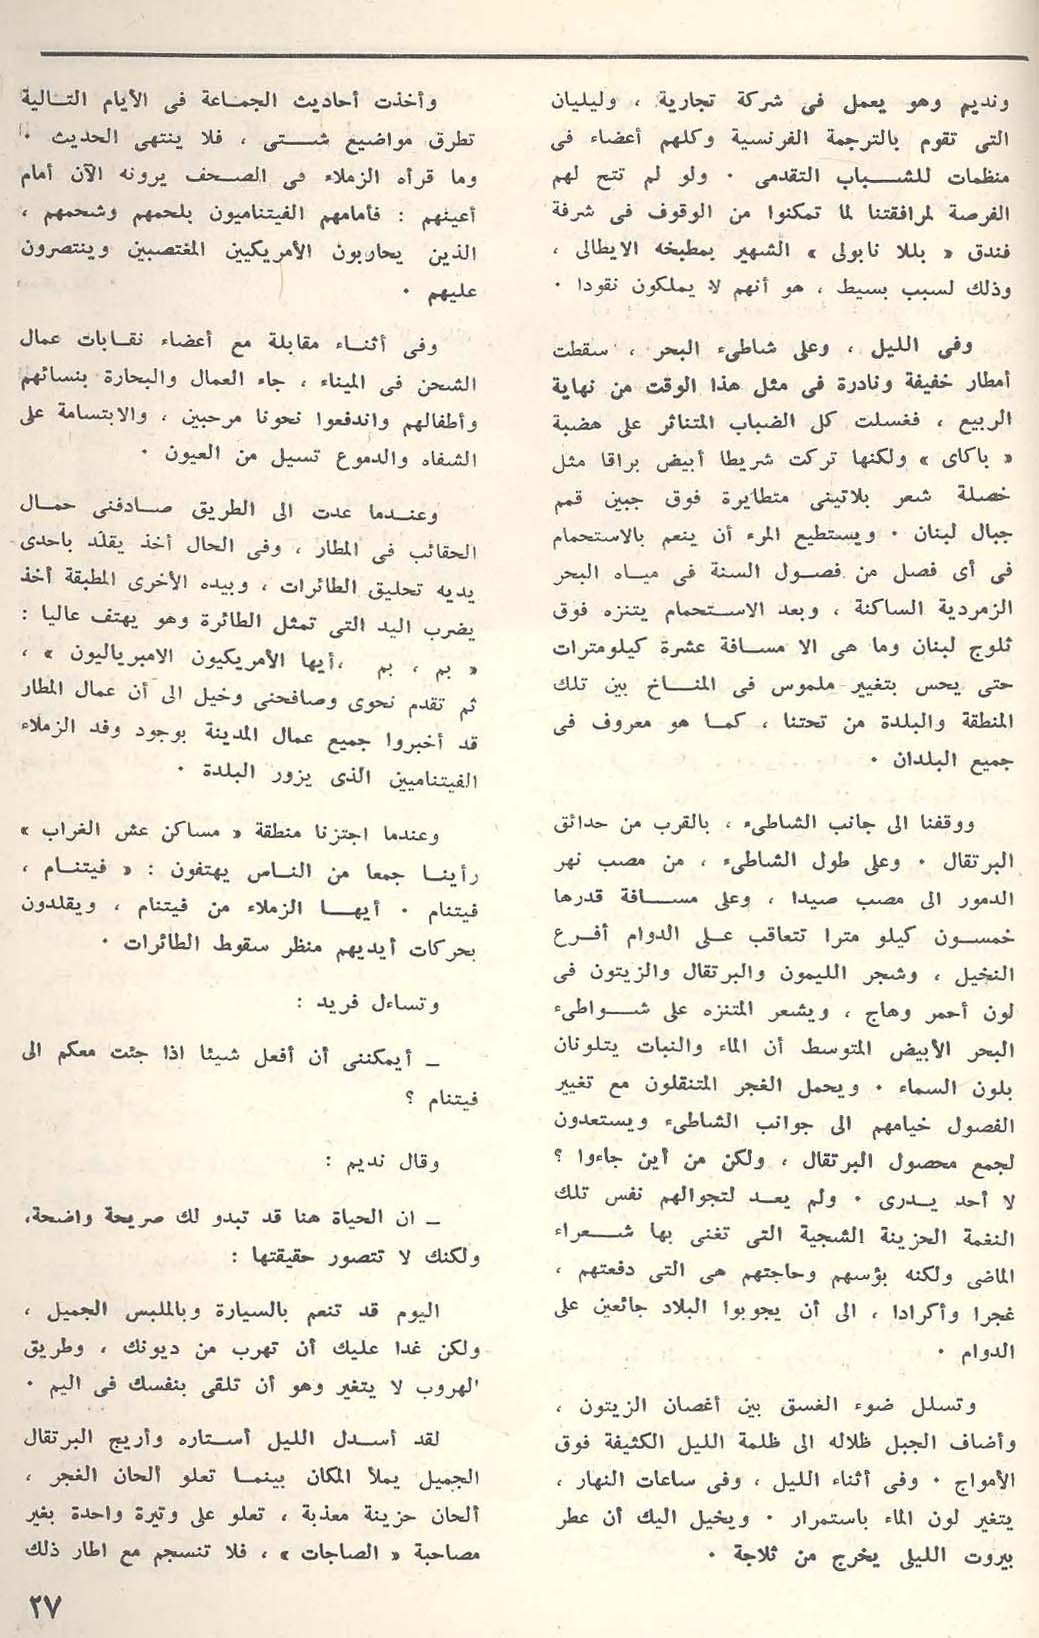 ونديم وهو يعمل فى شركة تجارية ، وليليان
التى تقوم بالترجمة الفرنسية وكلهم أعضاء فى
منظمات للشـــباب التقدمى ٠ ولو لم تتح لهم
الفرصة لمرافقتنا لما تمكنوا من الوقوف فى شرفة
فندق « بللا نابولى » الشهير بمطبخه الايطالى ،
وذلك لسبب بسيط ، هو أنهم لا يملكون نقودا ٠
وفى الليل ، وعلى شاطىء البحر ، سقطت
أمطار خفيفة ونادرة فى مثل هذا الوقت من نهاية
الربيع ، فغسلت كل الضباب المتناثر على هضبة
« باكاى » ولكنها تركت شريطا أبيض براقا مثل
خصلة شعر بلاتينى متطايرة فوق جبين قمم
جبال لبنان ٠ ويستطيع المرء أن ينعم بالاستحمام
فى أى فصل من فصـول السنة فى ميـاه البحر
الزمردية الساكنة ، وبعد الاســتحمام يتنزه فوق
ثلوج لبنان وما هى الا مسـافة عشرة كيلومترات
حتى يحس بتغيير ملموس فى المنـــاخ بين تلك
المنطقة والبلدة من تحتنا ، كمـا هو معروف فى
جميع البلدان ٠
ووقفنا الى جانب الشاطىء ، بالقرب من حدائق
البرتقال ٠ وعلى طول الشاطىء ، من مصب نهر
الدمور الى مصب صيدا ، وعلى مســـافة قدرها
خمســون كيلو مترا تتعاقب عـلى الدوام أفـرع
النخيل ، وشجر الليمون والبرتقال والزيتون فى
لون أحمر وهاج ، ويشعر المتنزه على شـــواطىء
البحر الأبيض المتوسط أن الماء والنبات يتلونان
بلون السماء ٠ ويحمل الغجر المتنقلون مع تغيير
الفصول خيامهم الى جوانب الشاطىء ويستعدون
لجمع محصول البرتقال ، ولكن من أين جاءوا ؟
لا أحد يــدرى ٠ ولم يعــد لتجوالهم نفس تلك
النغمة الحزينة الشجية التى تغنى بها شـــعراء
الماضى ولكنه بؤسهم وحاجتهم هى التى دفعتهم ،
غجرا وأكرادا ، الى أن يجوبوا البلاد جائعين على
الدوام ٠
وتسلل ضوء الغسق بين أغصان الزيتون ،
وأضاف الجبل ظلاله الى ظلمة الليل الكثيفة فوق
الأمواج ٠ وفى أثناء الليل ، وفى ساعات النهار ،
يتغير لون الماء باستمرار ٠ ويخيل اليك أن عطر
بيروت الليلى يخرج من ثلاجة ٠
وأخذت أحاديث الجمـاعة فى الأيام التـالية
تطرق مواضيع شــتى ، فلا ينتهى الحديث ٠
وما قرأه الزملاء فى الصـحف يرونه الآن أمام
أعينهم : فأمامهم الفيتناميون بلحمهم وشحمهم ،
الذين يحاربون الأمريكيين المغتصبين وينتصرون
عليهم ٠
وفى أثنـاء مقابلة مع أعضاء نقـابات عمال
الشحن فى الميناء ، جاء العمال والبحارة بنسائهم
وأطفالهم واندفعوا نحونا مرحبين ، والابتسامة على
الشفاه والدموع تسيل من العيون ٠
وعنــدما عدت الى الطريق صـادفنى حمـال
الحقائب فى المطار ، وفى الحال أخذ يقلد باحدى
يديه تحليق الطائرات ، وبيده الأخرى المطبقة أخذ
يضرب اليد التى تمثل الطائرة وهو يهتف عاليا :
« بم ، بم ،أيها الأمريكيون الامبرياليون » ،
ثم تقدم نحوى وصافحنى وخيل الى أن عمال المطار
قد أخبروا جميع عمال المدينة بوجود وفد الزملاء
الفيتناميين الذى يزور البلدة ٠
وعندما اجتزنا منطقة « مساكن عش الغراب »
رأينـا جمعا من النـاس يهتفون : « فيتنـام ،
فيتنام ٠ أيهــا الزملاء من فيتنام ، ويقلدون
بحركات أيديهم منظر سقوط الطائرات ٠
وتساءل فريد :
ـ أيمكننى أن أفعل شيئا اذا جئت معكم الى
فيتنام ؟
وقال نديم :
ـ ان الحياة هنا قد تبدو لك صريحة واضحة،
ولكنك لا تتصور حقيقتها :
اليوم قد تنعم بالسيارة وبالملبس الجميل ،
ولكن غدا عليك أن تهرب من ديونك ، وطريق
الهروب لا يتغير وهو أن تلقى بنفسك فى اليم ٠
لقد أسـدل الليل أسـتاره وأريج البرتقال
الجميل يملأ المكان بينمـا تعلو ألحان الغجر ،
ألحان حزينة معذبة ، تعلو على وتيرة واحدة بغير
مصاحبة « الصاجات » ، فلا تنسجم مع اطار ذلك
٢٧